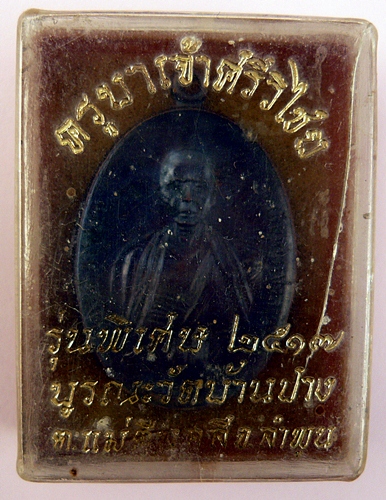 ครูบาเจ้าศรีวิไชย
รุ่นพิเศษ ๒๕๑๗
บูรณะวัดบ้านปาง
ต.แม่ตืน อ.ลี้ จ.ลำพูน